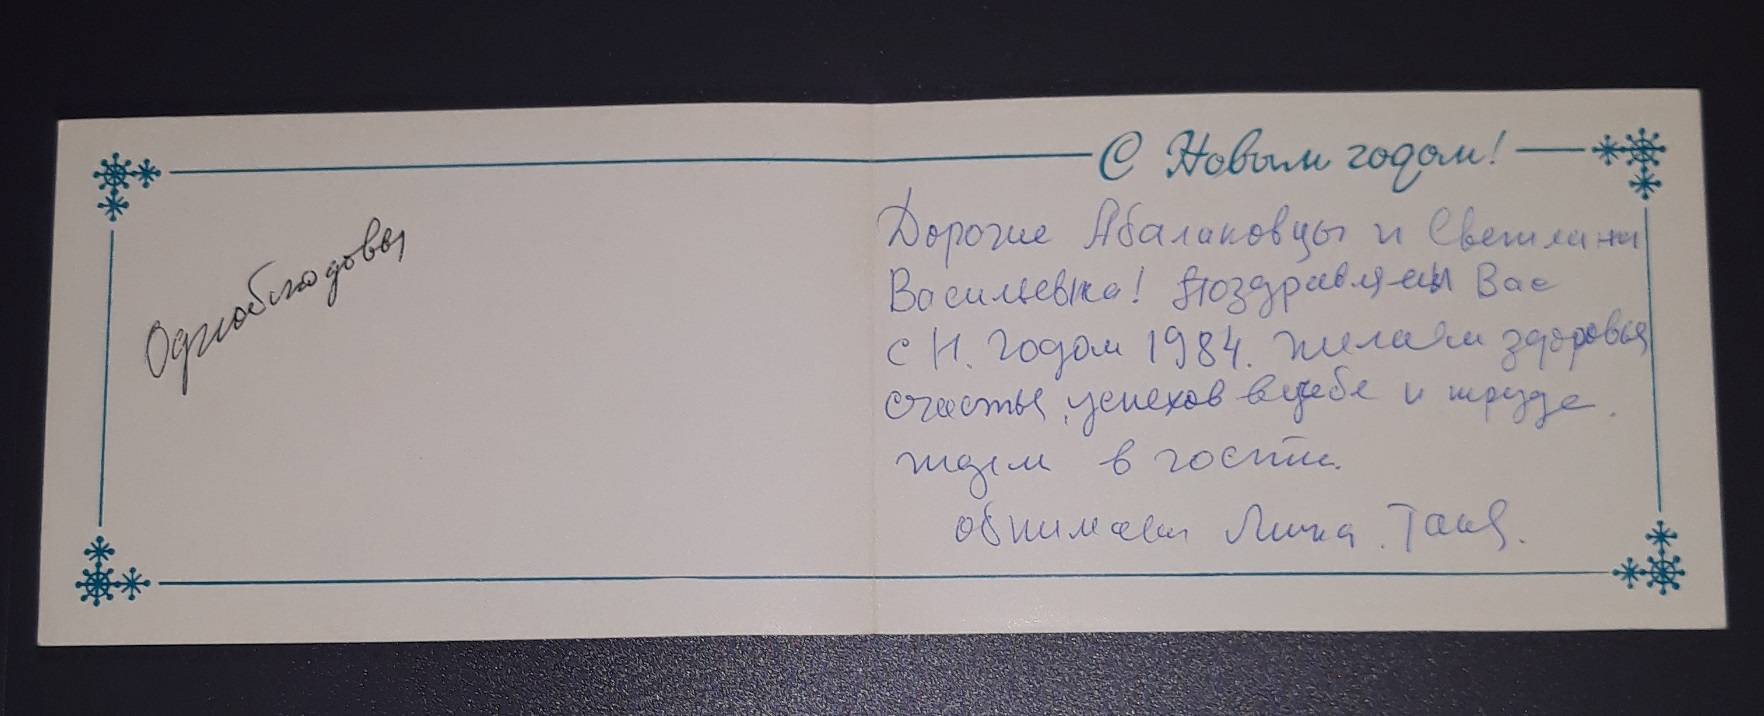 Одноблюдовы
С Новым годом!
Дорогие Абалаковцы и Светлана
Васильевна! Поздравляем Вас
с Н. Годом 1984. Желаем здоровья
счастья, успехов в учебе и труде.
ждем в гости.
обнимаем Лина. Таня.